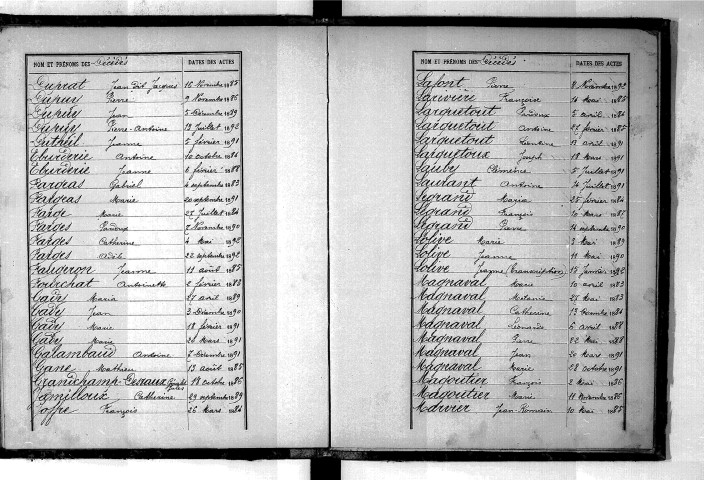 NOM ET PRÉNOMS DES Décédés DATES DES ACTES
Duprat Jean dit Jacques 16 Novembre 1885
Dupuy Pierre 9 Novembre 1886
Dupuy Jean 5 Décembre 1889
Dupuy Pierre Antoine 19 Juillet 1892
Dutreil Jeanne 5 février 1891
Eburderie Antoine 10 octobre 1886
Eburderie Jeanne 6 février 1888
Fargeas Gabriel 4 septembre 1883
Fargeas Marie 20 septembre 1891
Farge Marie 27 Juillet 1884
Farges 7 Novembre 1890
Farges Catherine 4 Mai 1892
Farges 22 septembre 1892
Faugeron Jeanne 11 août 1885
Fourchat Antoinette 2 février 1888
Gady Maria 27 avril 1889
Gady Jean 3 Décembre 1890
Gady Marie 18 février 1891
Gady Marie 20 Mars 1891
Galambaud Antoine 7 Décembre 1891
Gane Mathieu 13 août 1885
Grandchamp 18 octobre 1886
Jamilloux Catherine 29 septembre 1889
Joffre François 26 Mars 1884
NOM ET PRÉNOMS DES Décédés DATES DES ACTES
Lafont Pierre 8 Novembre 1892
Larivière Françoise 14 Mai 1885
Larquetout 5 avril 1886
Larquetout Antoine 27 février 1885
Larquetout Léontine 12 avril 1891
Larquetoux Joseph 18 Mars 1891
Lauby Clémence 5 Juillet 1891
Laurant Antoine 24 Juillet 1891
Legrand Maria 25 février 1884
Legrand François 10 Mars 1887
Legrand Pierre 14 septembre 1890
Lolive Marie 3 Mai 1889
Lolive Jeanne 11 Mai 1890
Lolive Jeanne (Transcription) 15 Janvier 1892
Magnaval Marie 10 avril 1883
Magnaval Melanie 27 Mai 1883
Magnaval Catherine 13 Décembre 1884
Magnaval Léonarde 6 avril 1888
Magnaval Pierre 22 Mai 1888
Magnaval Jean 20 Mars 1891
Magnaval Marie 28 octobre 1891
Magoutier François 2 Mai 1886
Magoutier Marie 11 Novembre 1886
Marvier Jean Romain 10 Mai 1885